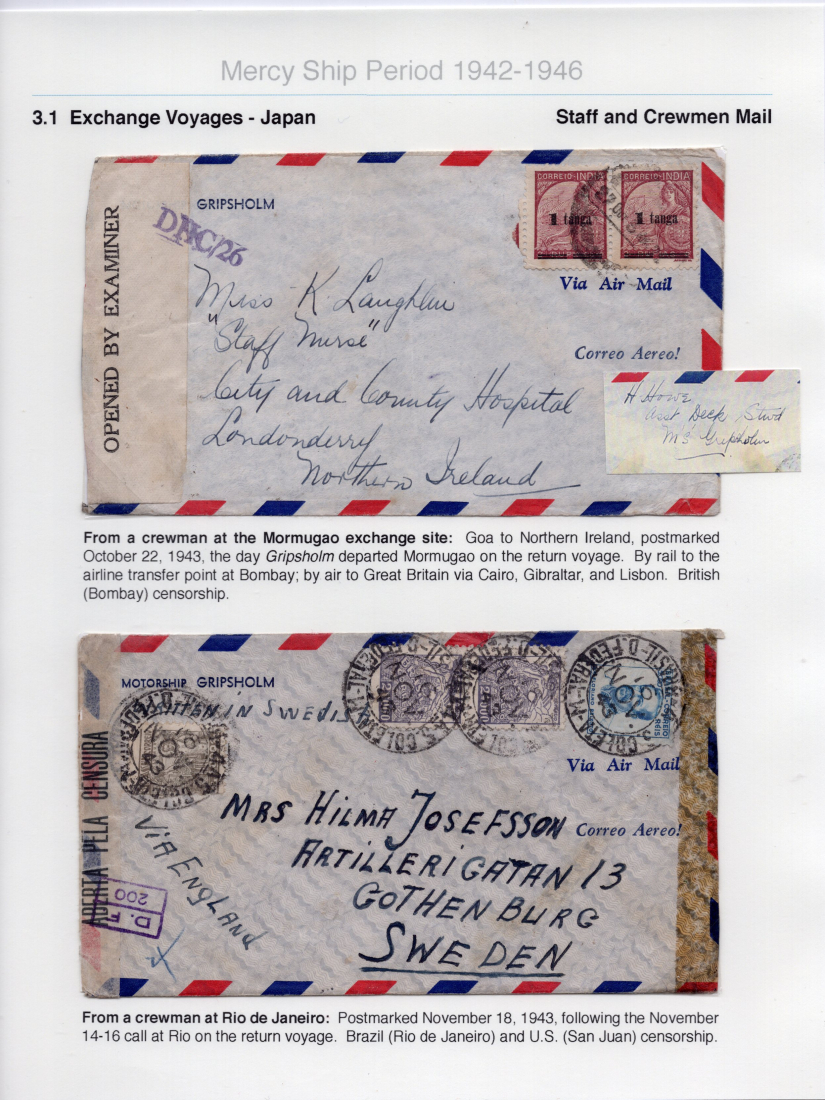 Mercy Ship Period 1942-1946
3.1 Exchange Voyages - Japan
Staff and Crewmen Mail
GRIPSHOLM
CORREIO-INDIA
CORREIO-INDIA
1 tanga
1 tanga
OPENED BY EXAMINER
DHC/26
Via Air Mail
Correo Aereo!
Miss K. Laughlin
"Staff Nurse"
City and County Hospital
Londonderry
Northern Ireland
H Howe
Asst Deck Stwd
M.S. Gripsholm
From a crewman at the Mormugao exchange site: Goa to Northern Ireland, postmarked
October 22, 1943, the day Gripsholm departed Mormugao on the return voyage. By rail to the
airline transfer point at Bombay; by air to Great Britain via Cairo, Gibraltar, and Lisbon. British
(Bombay) censorship.
MOTORSHIP GRIPSHOLM
WRITTEN IN SWEDISH
ABERTA PELA CENSURA
D.F.
200
Via Air Mail
Correo Aereo!
VIA ENGLAND
MRS HILMA JOSEFSSON
ARTILLERIGATAN 13
GOTHENBURG
SWEDEN
From a crewman at Rio de Janeiro: Postmarked November 18, 1943, following the November
14-16 call at Rio on the return voyage. Brazil (Rio de Janeiro) and U.S. (San Juan) censorship.